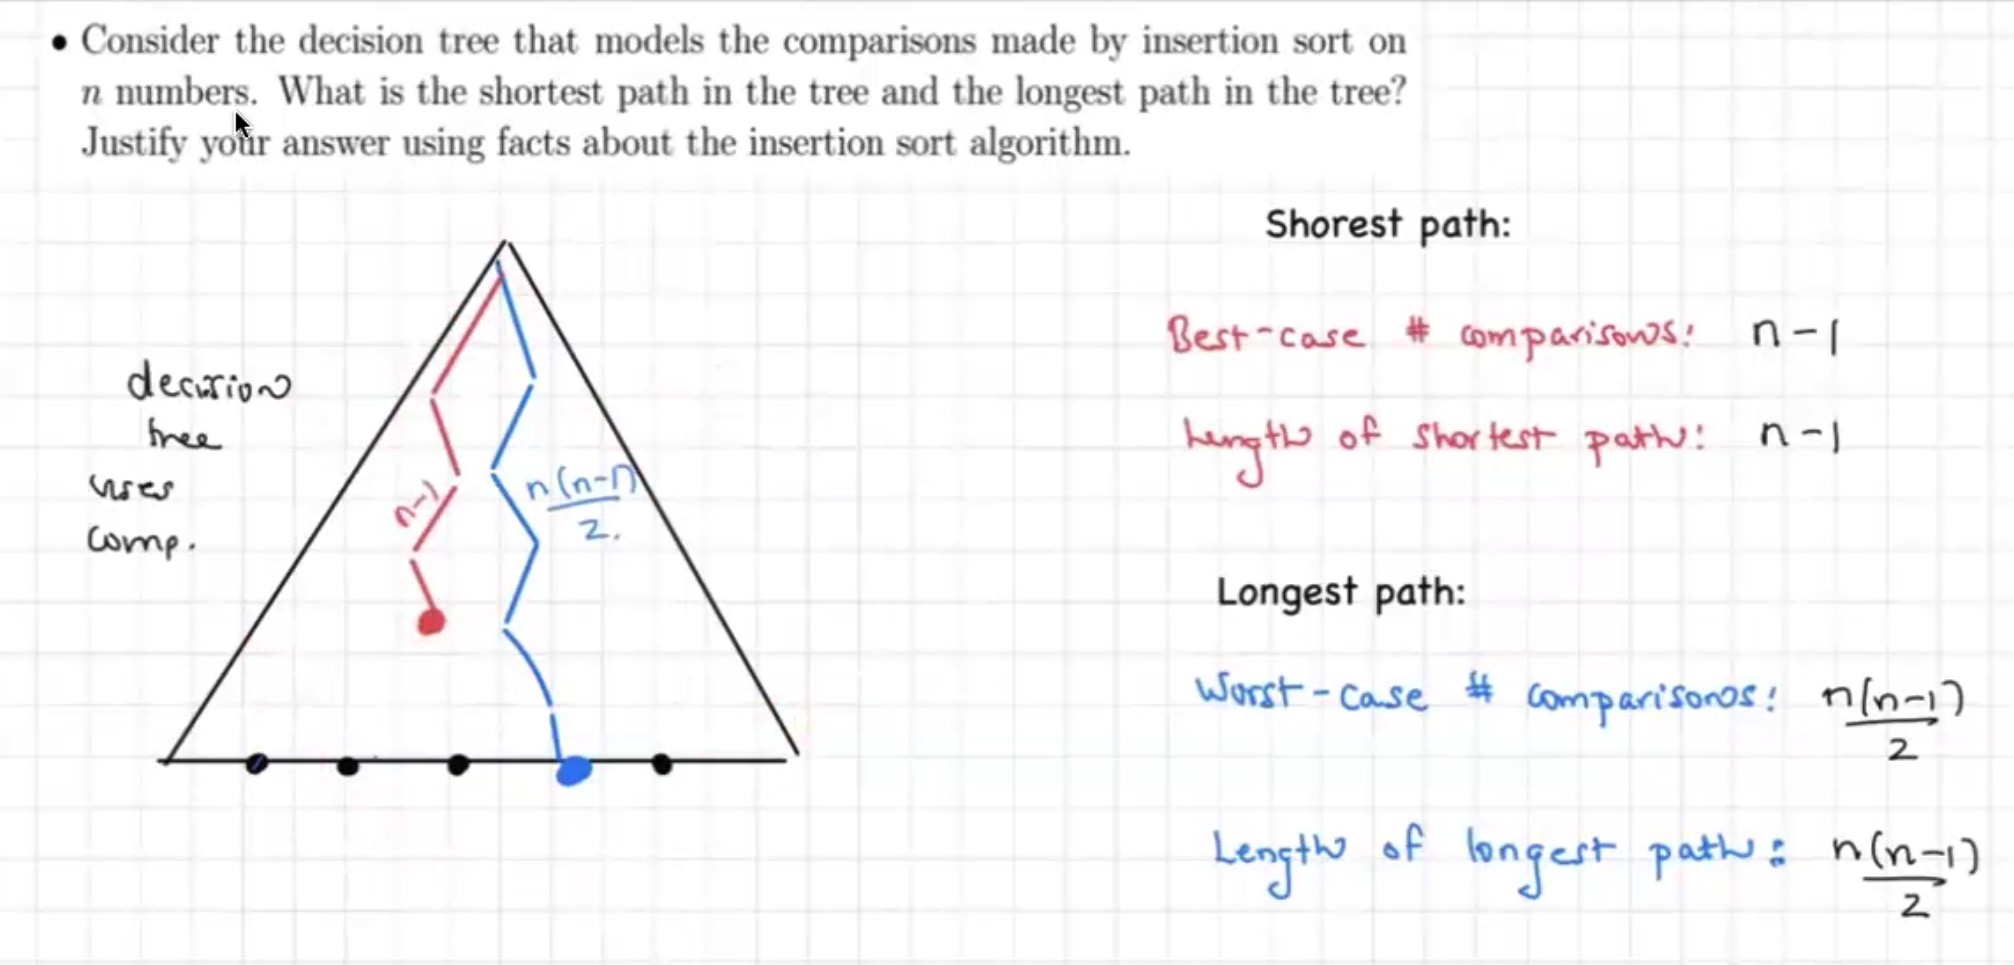 • Consider the decision tree that models the comparisons made by insertion sort on
n numbers. What is the shortest path in the tree and the longest path in the tree?
Justify your answer using facts about the insertion sort algorithm.
decision
tree
uses
comp.
n-1
n(n-1)
2.
Shorest path:
Best-case # comparisons: n-1
Length of shortest path: n-1
Longest path:
Worst-case # comparisons: n(n-1)
2
Length of longest path: n(n-1)
2